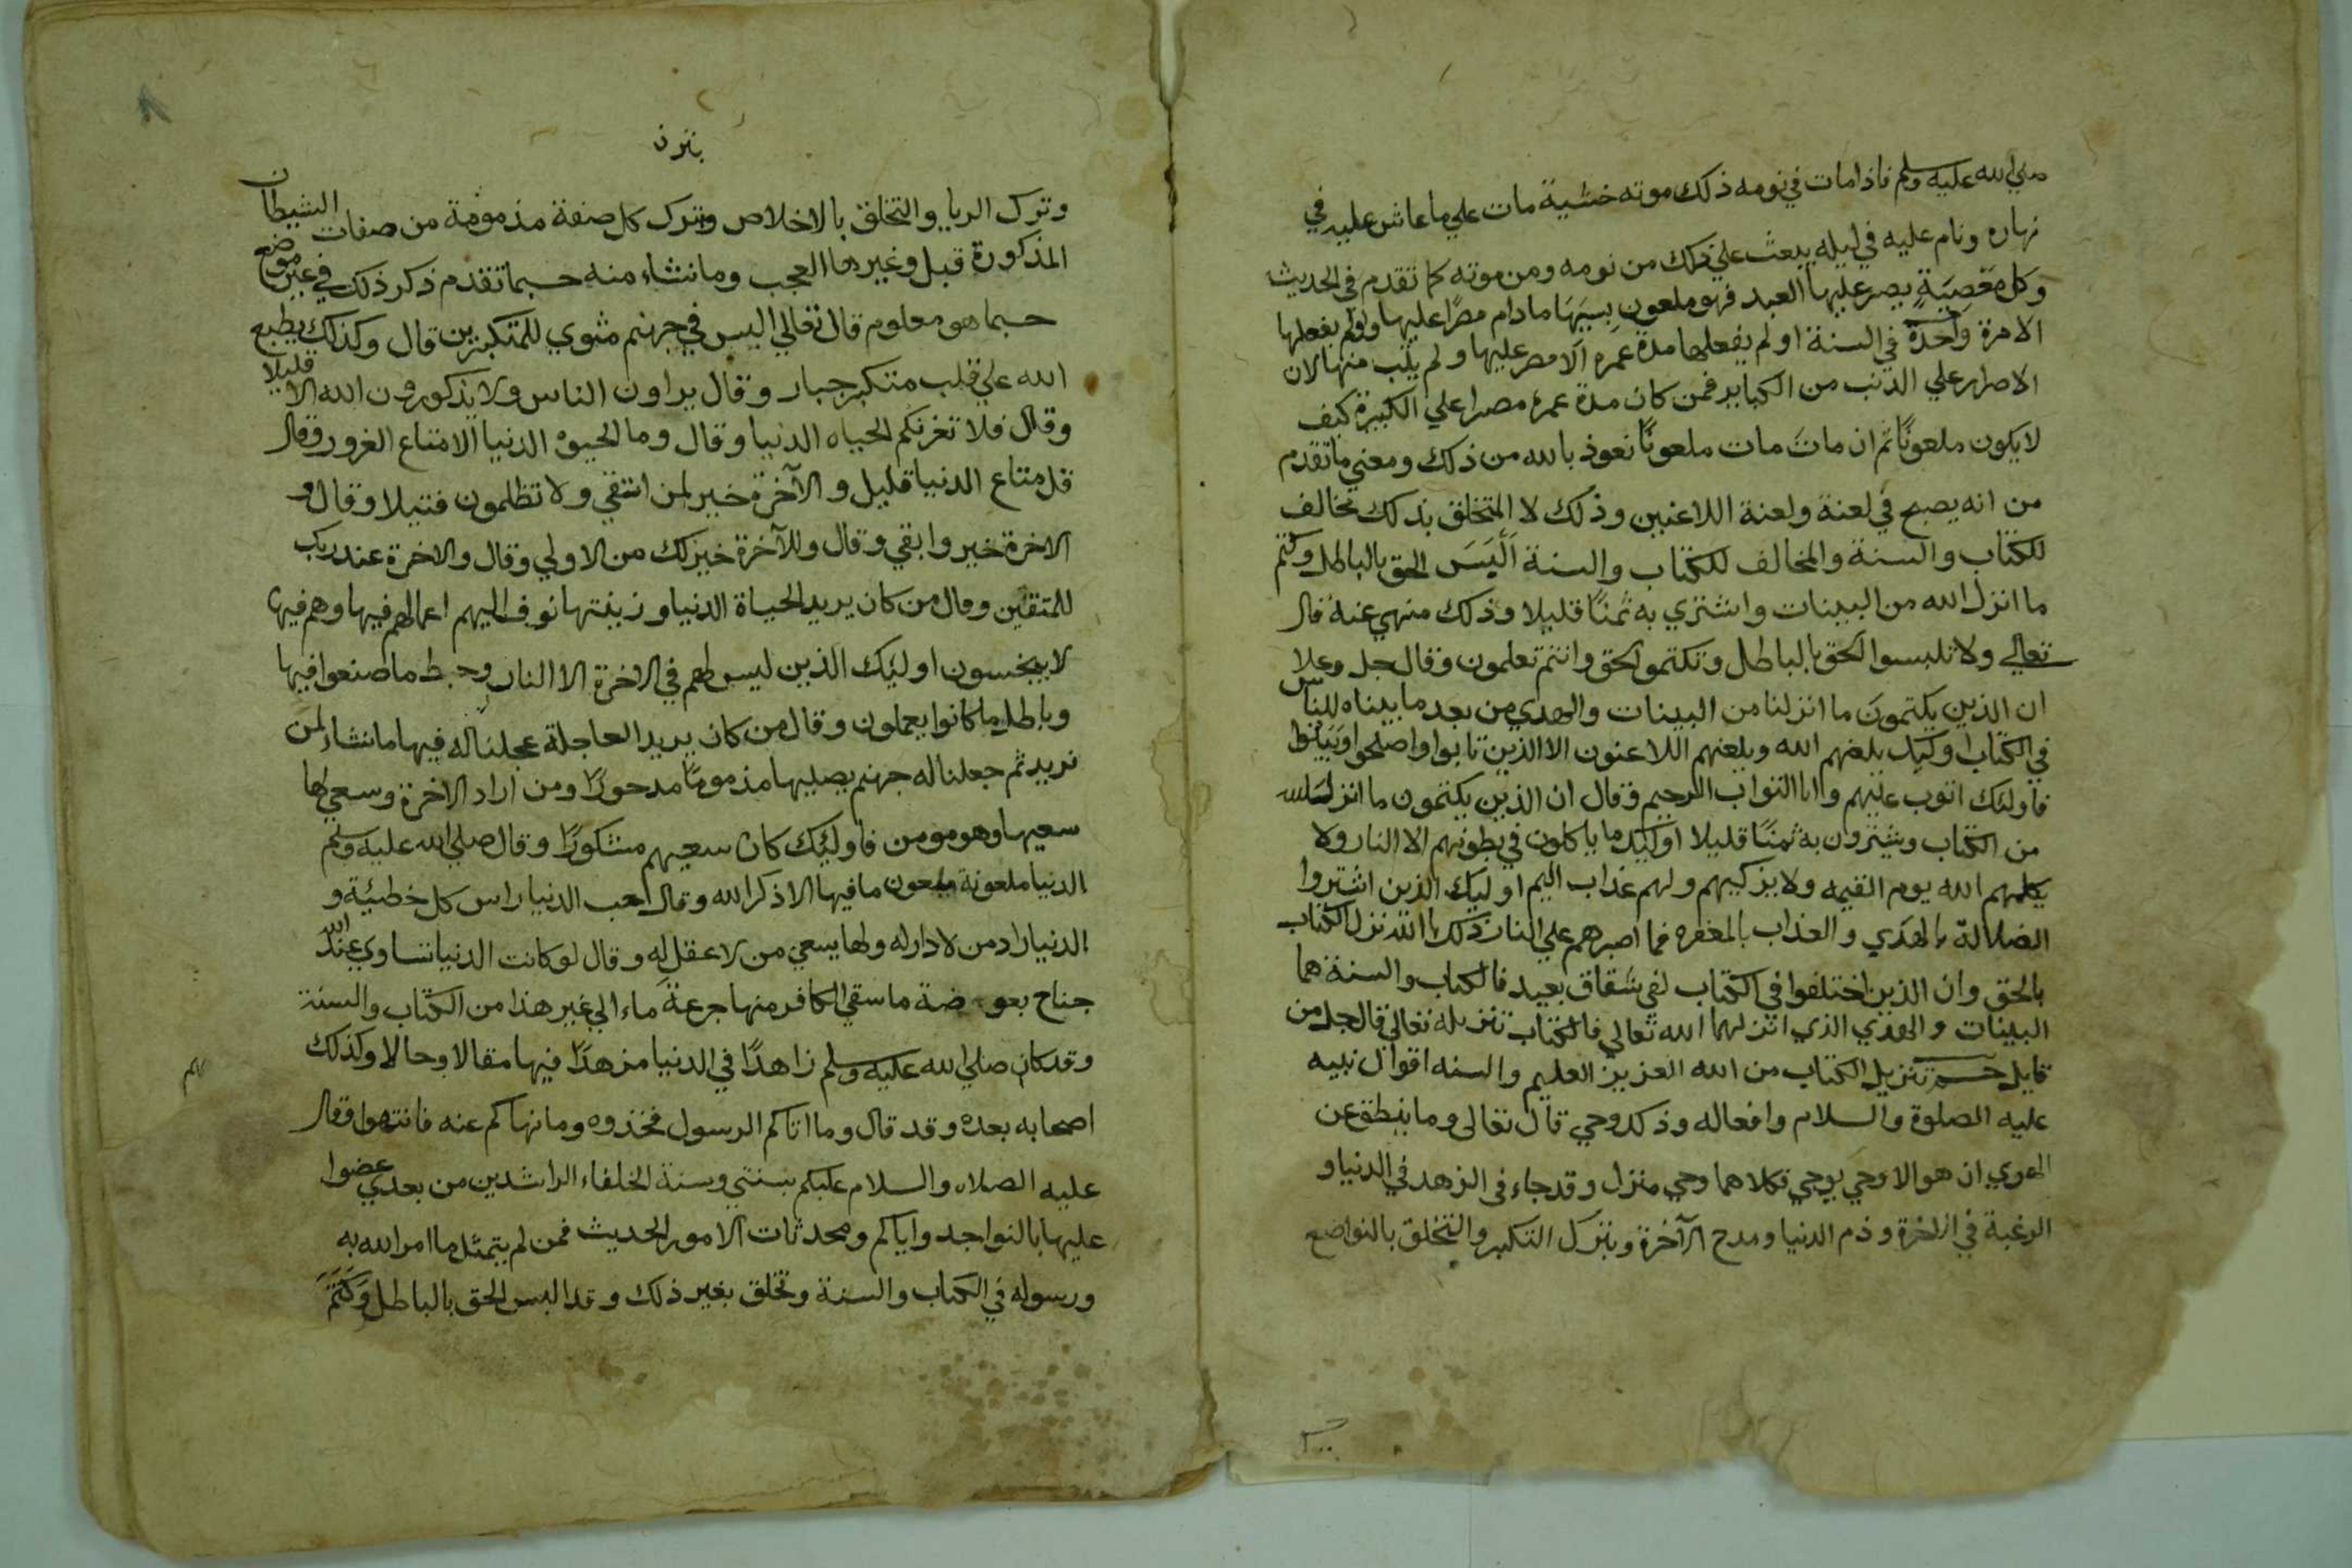 صلي الله عليه وسلم فاذا مات في نومه ذلك موته خشية مات علي ما عاش عليه في
نهاره ونام عليه في ليله يبعث علي ذلك من نومه ومن موته كما تقدم في الحديث
وكل معصية يصر عليها العبد فهو ملعون بسببها ما دام مصرا عليها ولو لم يفعلها
الا مرة واحدة في السنة او لم يفعلها مدة عمره الا مصر عليها ولم يتب منها لان
الاصرار علي الذنب من الكباير فمن كان مدة عمره مصرا علي الكبيرة كيف
لا يكون ملعونا ثم ان مات مات ملعونا نعوذ بالله من ذلك ومعني ما تقدم
من انه يصبح في لعنة ولعنة اللاعنين وذلك لا المتخلق بذلك مخالف
للكتاب والسنة والمخالف للكتاب والسنة البس الحق بالباطل وكتم
ما انزل الله من البينات واشتري به ثمنا قليلا وذلك منهي عنه قال
تعالي ولا تلبسوا الحق بالباطل وتكتموا الحق وانتم تعلمون وقال جل وعلا
ان الذين يكتمون ما انزلنا من البينات والهدي من بعد ما بيناه للناس
في الكتاب اوليك يلعنهم الله ويلعنهم اللاعنون الا الذين تابوا واصلحوا وبينوا
فاوليك اتوب عليهم وانا التواب الرحيم وقال ان الذين يكتمون ما انزل الله
من الكتاب ويشترون به ثمنا قليلا اوليك ما ياكلون في بطونهم الا النار ولا
يكلمهم الله يوم القيمه ولا يزكيهم ولهم عذاب اليم اوليك الذين اشتروا
الضلالة بالهدي والعذاب بالمغفره فما اصبرهم علي النار ذلك بان الله نزل الكتاب
بالحق وان الذين اختلفوا في الكتاب لفي شقاق بعيد فالكتاب والسنة هما
البينات والهدي الذي انزلهما الله تعالي فالكتاب تنزيله تعالي قال جل من
قايل حم تنزيل الكتاب من الله العزيز العليم والسنه اقوال نبيه
عليه الصلوة والسلام وافعاله وذلك وحي قال تعالى وما ينطق عن
الهوي ان هو الا وحي يوحي فكلاهما وحي منزل وقد جاء في الزهد في الدنيا و
الرغبة في الاخرة وذم الدنيا ومدح الآخرة وبترك التكبر والتخلق بالتواضع
وترك الريا والتخلق بالاخلاص وترك كل صفة مذمومة من صفات الشيطان
المذكورة قبل وغيرها العجب وما نشاء منه حسبما تقدم ذكر ذلك في غير موضع
حسبما هو معلوم قال تعالي اليس في جهنم مثوي للمتكبرين قال وكذلك يطبع
الله علي قلب متكبر جبار وقال يراون الناس ولا يذكورون الله الا قليلا
وقال فلا تغرنكم الحياه الدنيا وقال وما الحيوة الدنيا الا متاع الغرور وقال
قل متاع الدنيا قليل والآخرة خير لمن اتقي ولا تظلمون فتيلا وقال و
الاخرة خير وابقي وقال وللآخرة خير لك من الاولي وقال والاخرة عند ربك
للمتقين وقال من كان يريد الحياة الدنيا وزينتها نوف اليهم اعمالهم فيها وهم فيها
لا يبخسون اوليك الذين ليس لهم في الاخرة الا النار وحبط ما صنعوا فيها
وباطل ما كانوا يعملون وقال من كان يريد العاجلة عجلنا له فيها ما نشاء لمن
نريد ثم جعلنا له جهنم يصليها مذموما مدحورا ومن اراد الاخرة وسعي لها
سعيها وهو مومن فاوليك كان سعيهم مشكورا وقال صلي الله عليه وسلم
الدنيا ملعونة ملعون ما فيها الا ذكر الله وقال حب الدنيا راس كل خطيئة و
الدنيا دار من لا دار له ولها يسعي من لا عقل له وقال لو كانت الدنيا تساوي عند الله
جناح بعوضة ما سقي الكافر منها جرعة ماء الي غير هذا من الكتاب والسنة
وقد كان صلي الله عليه وسلم زاهدا في الدنيا مزهدا فيها مقالا وحالا وكذلك
اصحابه بعده وقد قال وما اتاكم الرسول فخذوه وما نهاكم عنه فانتهوا وقال
عليه الصلاه والسلام عليكم بسنتي وسنة الخلفاء الراشدين من بعدي عضوا
عليها بالنواجد واياكم ومحدثات الامور الحديث فمن لم يتمثل ما امر الله به
ورسوله في الكتاب والسنة وتخلق بغير ذلك وقد البس الحق بالباطل وكتم